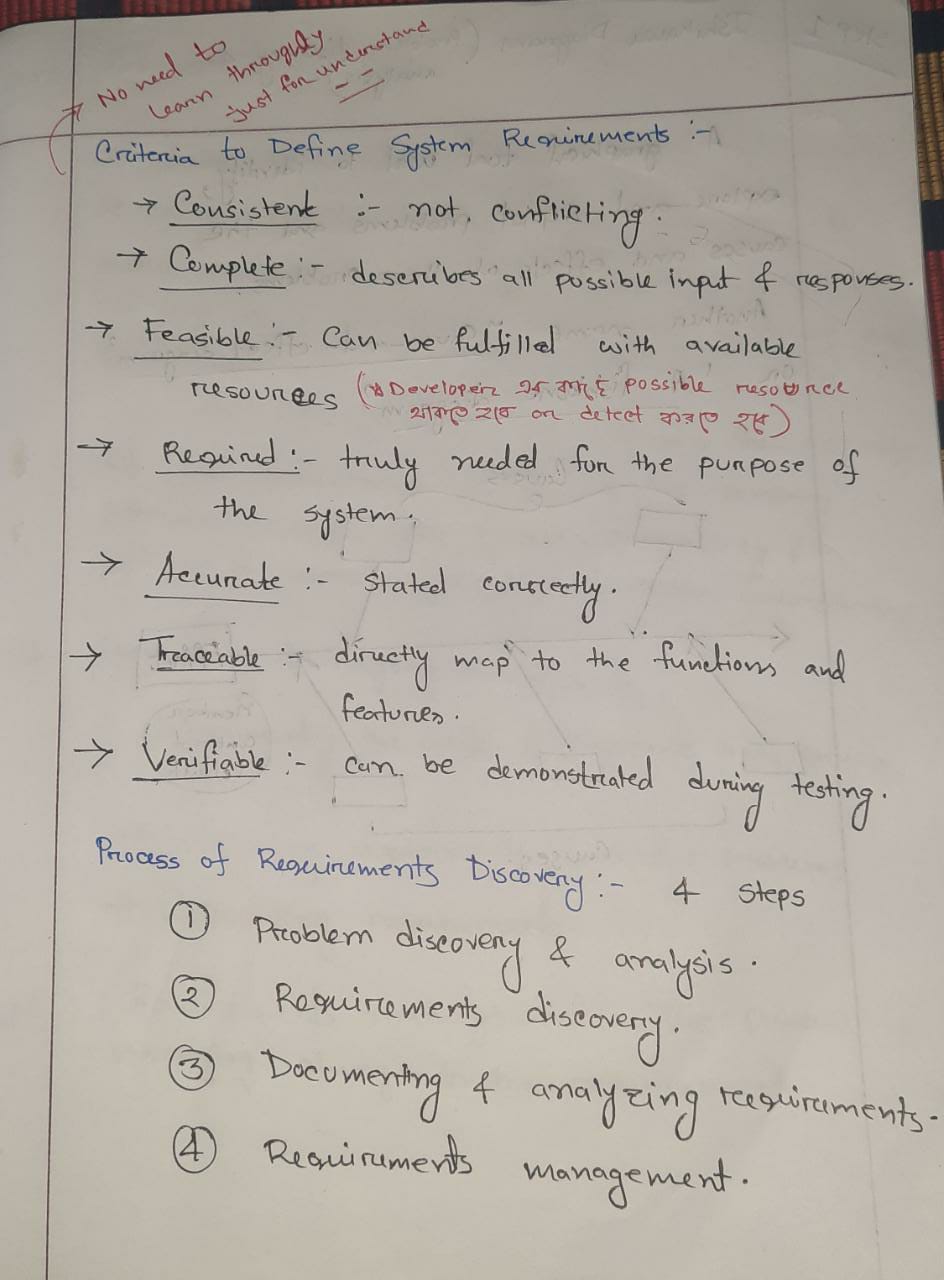 No need to
learn throughly
just for understand
Criteria to Define System Requirements :-
→ Consistent :- not conflicting.
→ Complete :- describes all possible input & responses.
→ Feasible :- Can be fulfilled with available
resources (Developer এর কাছে possible resource
থাকতে হবে or detect করতে হবে)
→ Required :- truly needed for the purpose of
the system.
→ Accurate :- Stated correctly.
→ Traceable :- directly map to the functions and
features.
→ Verifiable :- can be demonstrated during testing.
Process of Requirements Discovery :- 4 steps
① Problem discovery & analysis.
② Requirements discovery.
③ Documenting & analyzing requirements.
④ Requirements management.